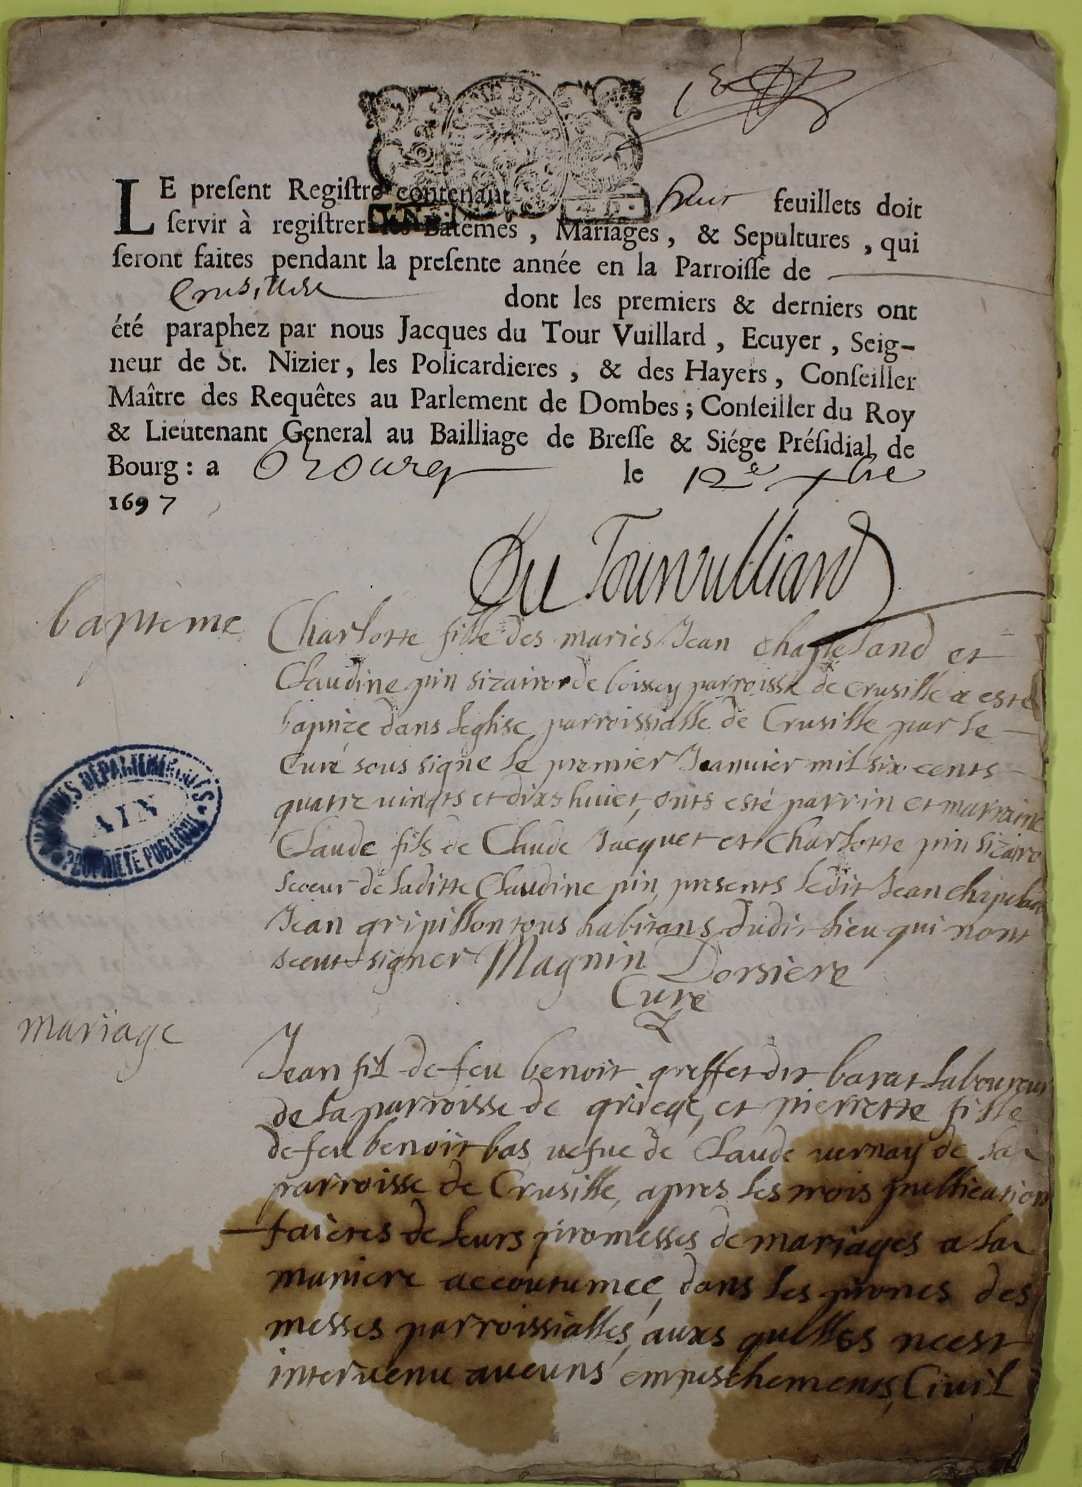 1er
LE present Registre contenant huit feuillets doit
servir à registrer les Batêmes, Mariages, & Sepultures, qui
seront faites pendant la presente année en la Parroisse de
Crusille dont les premiers & derniers ont
été paraphez par nous Jacques du Tour Vuillard, Ecuyer, Seig-
neur de St. Nizier, les Policardieres, & des Hayers, Conseiller
Maître des Requêtes au Parlement de Dombes; Conseiller du Roy
& Lieutenant General au Bailliage de Bresse & Siége Présidial de
Bourg: a Bourg le 12e xbre
1697
Du Tourvulliard
baptême
Charlotte fille des maries Jean chapeland et
Claudine pin sizairor de boissey parroisse de Crusille a esté
baptize dans leglise parroissialle de Crusille par le
Curé sous signe le premier Jeanvier mil six cents
quatre vingts et dixs huict, onts esté parrin et marraine
Claude fils de Claude Jacquet et Charlotte pin sizairo
soeur de laditte Claudine pin, presents ledit Jean chapeland
Jean gripillon tous habitans dudit lieu qui nont
sceut signer Magnin Dorsiere
Curé
ARCHIVES DÉPARTEMENTALES
AIN
PROPRIÉTÉ PUBLIQUE
mariage
Jean fil de feu benoit greffet dit barat laboureur
de la parroisse de griege, et pierrette fille
de feu benoit bas vefue de Claude vernay de la
parroisse de Crusille, apres les trois publication
faictes de leurs promesses de mariages a la
maniere accoutumée, dans les prones des
messes parroissialles, auxs quelles ncest
intervenu aucuns empeschements, Civil